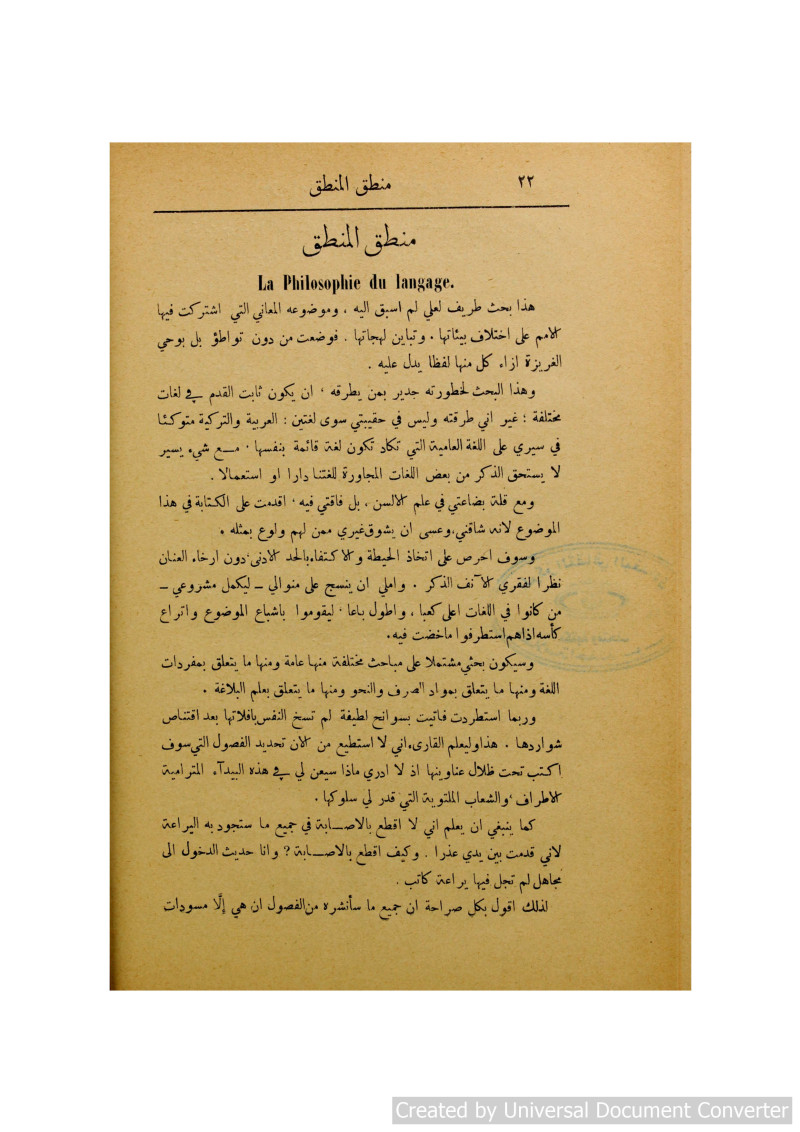 ٢٢ منطق المنطق
منطق المنطق
La Philosophie du langage.
هذا بحث طريف لعلي لم اسبق اليه ، وموضوعه المعاني التي اشتركت فيها
الامم على اختلاف بيئاتها . وتباين لهجاتها . فوضعت من دون تواطؤ بل بوحي
الغريزة ازاء كل منها لفظا يدل عليه .
وهذا البحث لخطورته جدير بمن يطرقه ، ان يكون ثابت القدم في لغات
مختلفة ؛ غير اني طرقته وليس في حقيبتي سوى لغتين : العربية والتركية متوكئا
في سيري على اللغة العامية التي تكاد تكون لغة قائمة بنفسها . مـــع شيء يسير
لا يستحق الذكر من بعض اللغات المجاورة للغتنا دارا او استعمالا .
ومع قلة بضاعتي في علم الالسن ، بل فاقتي فيه ، اقدمت على الكتابة في هذا
الموضوع لانه شاقني، وعسى ان يشوق غيري ممن لهم ولوع بمثله .
وسوف احرص على اتخاذ الحيطة والاكتفاء بالحد الادنى، دون ارخاء العنان
نظرا لفقري الآنف الذكر . واملي ان ينسج على منوالي ــ ليكمل مشروعي ــ
من كانوا في اللغات اعلى كعبا ، واطول باعا ، ليقوموا باشباع الموضوع واتراع
كأسه اذا هم استطرفوا ما خضت فيه.
وسيكون بحثي مشتملا على مباحث مختلفة منها عامة ومنها ما يتعلق بمفردات
اللغة ومنها ما يتعلق بمواد الصرف والنحو ومنها ما يتعلق بعلم البلاغة .
وربما استطردت فاتيت بسوانح لطيفة لم تسخ النفس بافلاتها بعد اقتناص
شواردها . هذا وليعلم القارىء اني لا استطيع من الان تحديد الفصول التي سوف
اكتب تحت ظلال عناوينها اذ لا ادري ماذا سيعن لي في هذه البيدآء المترامية
الاطراف ، والشعاب الملتوية التي قدر لي سلوكها .
كما ينبغي ان يعلم اني لا اقطع بالاصـــابة في جميع ما ستجود به اليراعة
لاني قدمت بين يدي عذرا . وكيف اقطع بالاصـــابة ? وانا حديث الدخول الى
مجاهل لم تجل فيها يراعة كاتب .
لذلك اقول بكل صراحة ان جميع ما سأنشره من الفصول ان هي إلّا مسودات
Created by Universal Document Converter